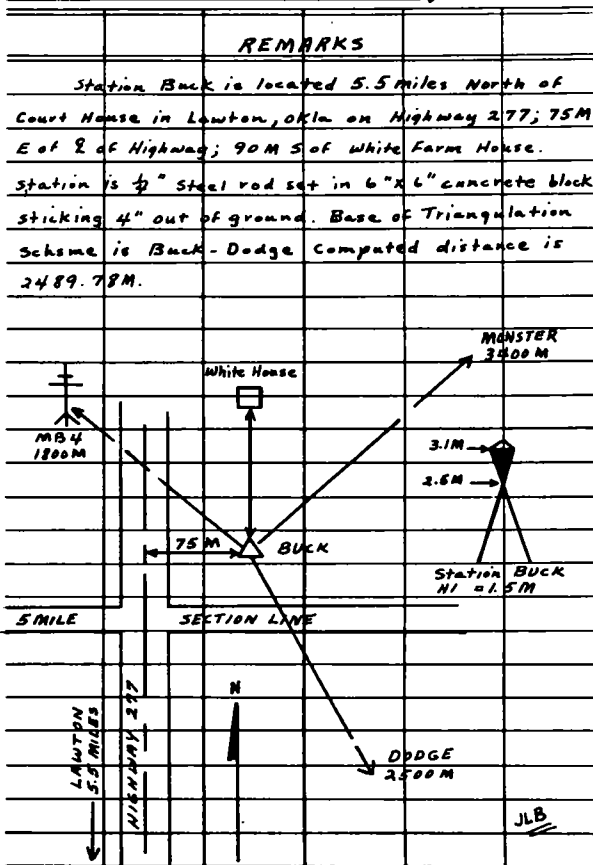 REMARKS
Station Buck is located 5.5 miles North of
Court House in Lawton, Okla on Highway 277; 75M
E of ℄ of Highway; 90 M S of White Farm House.
Station is ½" Steel rod set in 6" x 6" concrete block
sticking 4" out of ground. Base of Triangulation
Scheme is Buck - Dodge Computed distance is
2489.78M.
MONSTER
3400 M
White House
MB4
1800M
3.1M
2.6M
75 M
BUCK
Station BUCK
HI = 1.5M
5 MILE
SECTION LINE
LAWTON
5.5 MILES
HIGHWAY 277
N
DODGE
2500 M
JLB